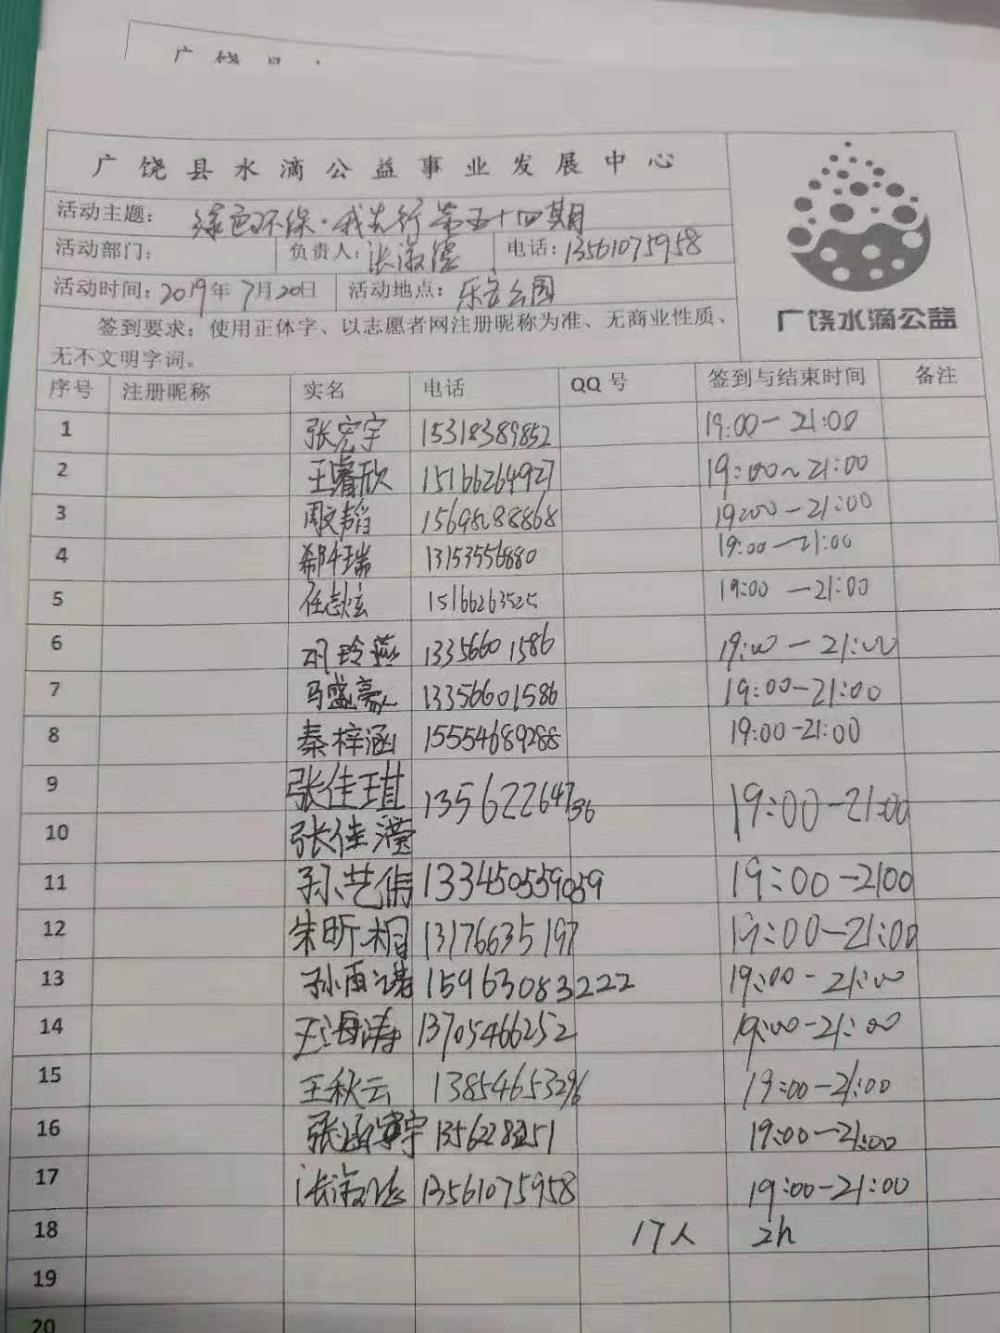 广饶县水滴公益事业发展中心
活动主题: 绿色环保·我先行第五十四期
活动部门: 负责人: 张淑 电话: 13561075958
活动时间: 2019年7月20日 活动地点: 乐安公园
签到要求: 使用正体字、以志愿者网注册昵称为准、无商业性质、
无不文明字词。
广饶水滴公益
序号 注册昵称 实名 电话 QQ号 签到与结束时间 备注
1 张宏宇 15318389852 19:00-21:00
2 王睿欣 15166264927 19:00~21:00
3 周文韬 15698288868 19:00-21:00
4 郗千瑞 13153556880 19:00-21:00
5 任志炫 15166263525 19:00-21:00
6 玲燕 13356601586 19:00-21:00
7 马盛豪 13356601586 19:00-21:00
8 秦梓涵 15554689288 19:00-21:00
9 张佳琪 13562264736 19:00-21:00
10 张佳滢
11 孙艺倩 19:00-2100
12 朱昕桐 13176635197 19:00-21:00
13 孙雨诺 15963083222 19:00-21:00
14 王海涛 13705466252 19:00-21:00
15 王秋云 13854653296 19:00-21:00
16 张涵宇 19:00-21:00
17 张淑 13561075958 19:00-21:00
18 17人 2h
19
20